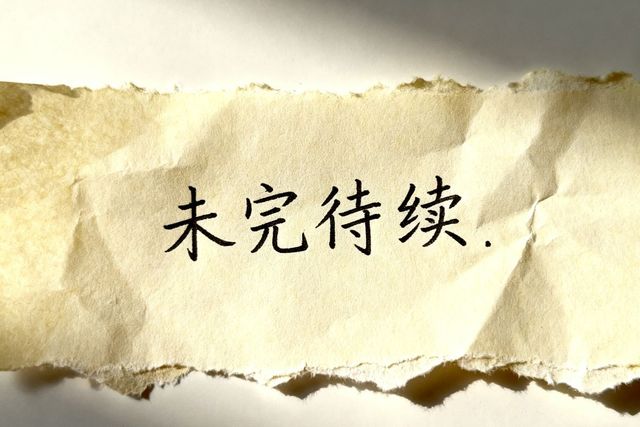 未完待续.